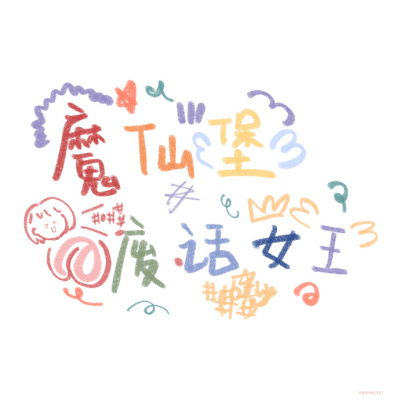 魔仙堡
@废话女王